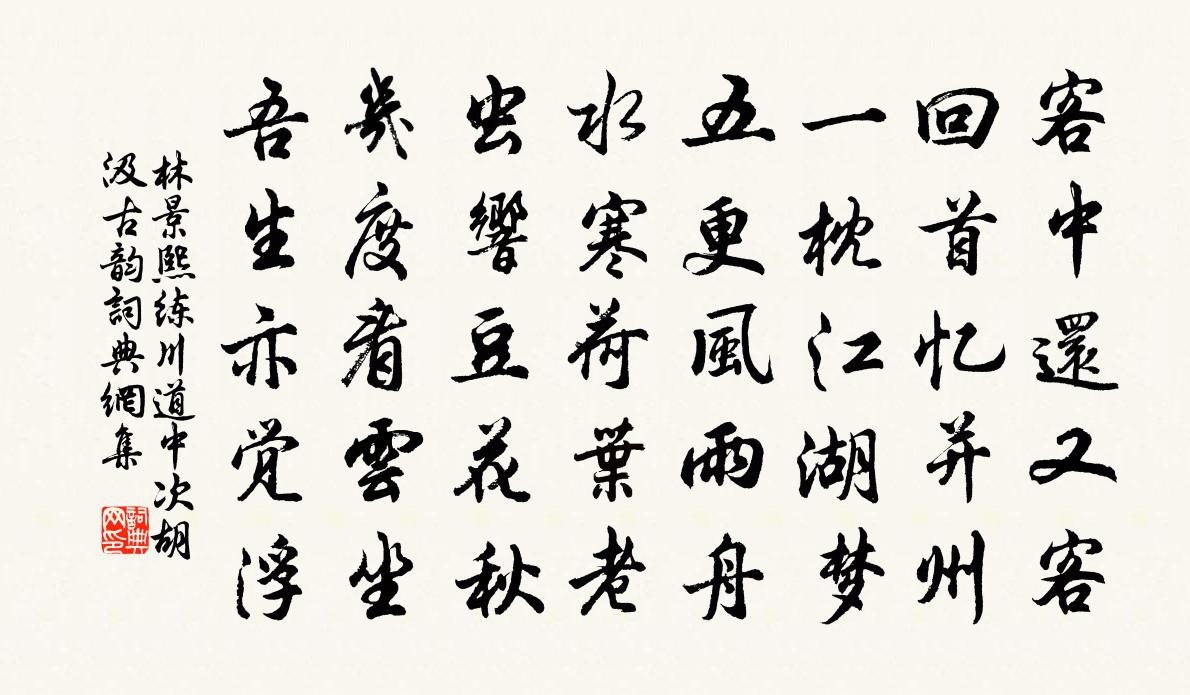 客中還又客
回首忆并州
一枕江湖梦
五更風雨舟
水寒荷葉老
虫響豆花秋
幾度看雲坐
吾生亦覚浮
林景熙练川道中次胡
汲古韵詞典網集
詞典网印